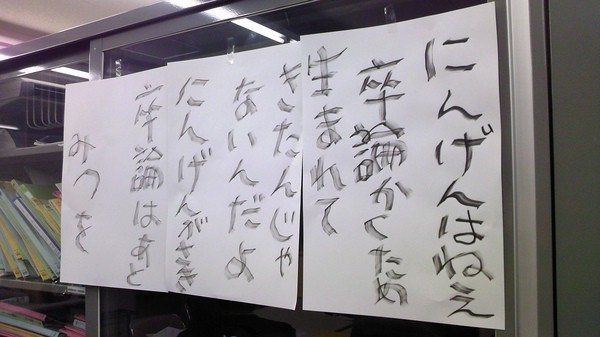 にんげんはねえ
卒論かくため
生まれて
きたんじゃ
ないんだよ
にんげんがさき
卒論はあと
みつを